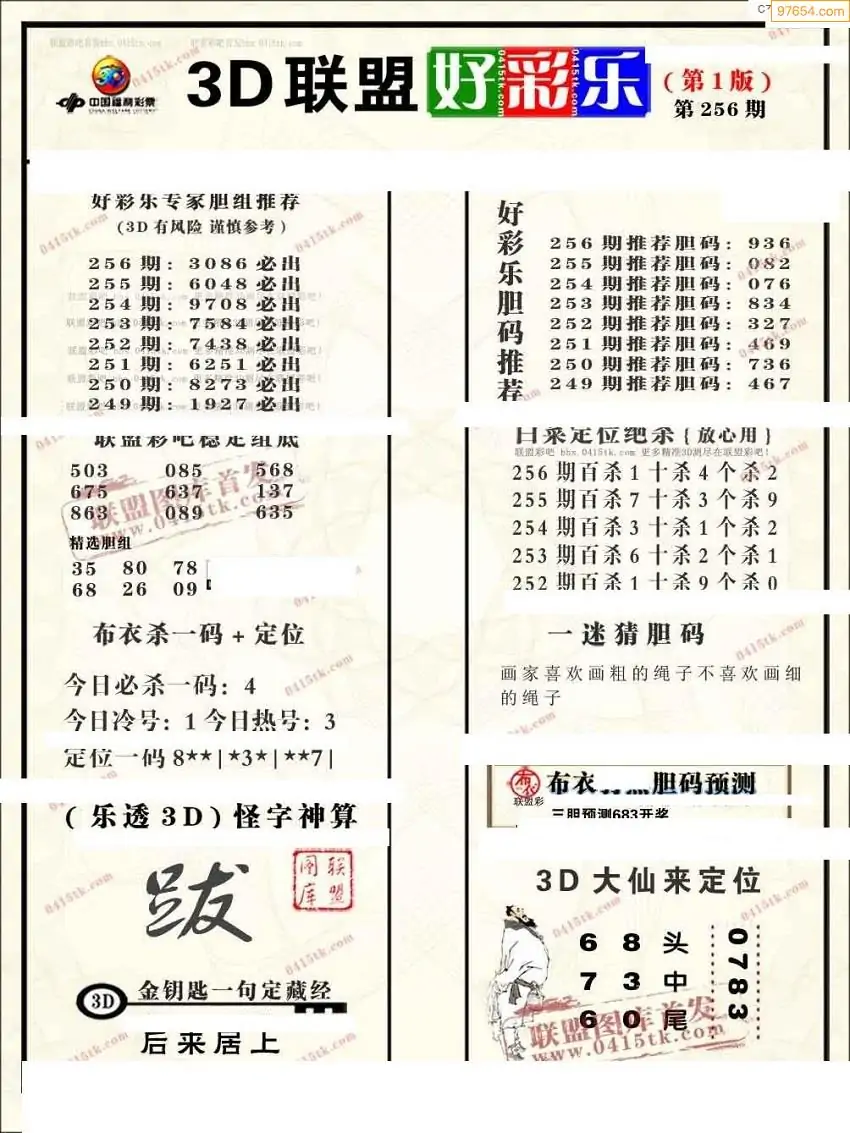 97654.com
3D联盟好彩乐
(第1版)
第256期
中国福利彩票
CHINA WELFARE LOTTERY
好彩乐专家胆组推荐
(3D有风险 谨慎参考)
256期:3086必出
255期:6048必出
254期:9708必出
253期:7584必出
252期:7438必出
251期:6251必出
250期:8273必出
249期:1927必出
联盟彩吧稳定组底
503 085 568
675 637 137
863 089 635
精选胆组
35 80 78
68 26 09
布衣杀一码+定位
今日必杀一码:4
今日冷号:1 今日热号:3
定位一码8**|*3*|**7|
(乐透3D)怪字神算
跋
联盟图库
3D 金钥匙一句定藏经
后来居上
好彩乐胆码推荐
256期推荐胆码:936
255期推荐胆码:082
254期推荐胆码:076
253期推荐胆码:834
252期推荐胆码:327
251期推荐胆码:469
250期推荐胆码:736
249期推荐胆码:467
白菜定位绝杀{放心用}
联盟彩吧 bbs.0415tk.com 更多精准3D测尽在联盟彩吧!
256期百杀1十杀4个杀2
255期百杀7十杀3个杀9
254期百杀3十杀1个杀2
253期百杀6十杀2个杀1
252期百杀1十杀9个杀0
一迷猜胆码
画家喜欢画粗的绳子不喜欢画细
的绳子
布衣
联盟彩
布衣 胆码预测
三胆预测683开奖
3D大仙来定位
68头
73中
60尾
0783
联盟图库首发
www.0415tk.com